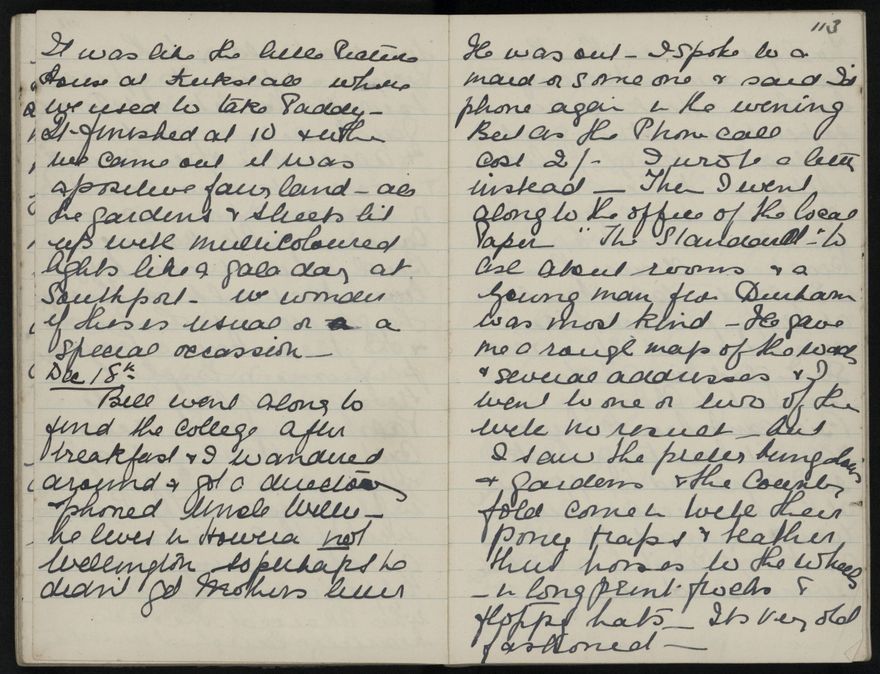 It was like the little Picture
House at Kirkstall where
we used to take Paddy -
It finished at 10 & when
we came out it was
a positive fairy land - all
the gardens & streets lit
up with multicoloured
lights like a gala day at
Southport - we wonder
if this is usual or a a
special occassion -
Dec 18th
Bill went along to
find the College after
breakfast & I wandered
around & got a directory
& phoned Uncle Willie -
he lives in Hawera not
Wellington so perhaps he
didn't get Mothers letter
113
He was out - I spoke to a
maid or someone & said I'd
phone again in the evening
But as the Phone call
cost 2/- I wrote a letter
instead - Then I went
along to the office of the local
Paper "The Standard" to
ask about rooms & a
young man from Durham
was most kind - He gave
me a rough map of the
& several addresses & I
went to one or two of them
with no result - but
I saw the pretty bungalows
& gardens & the Country
fold come in with their
poney traps & teather
their horses to the wheels
- in long print frocks &
floppy hats - Its very old
fashioned -